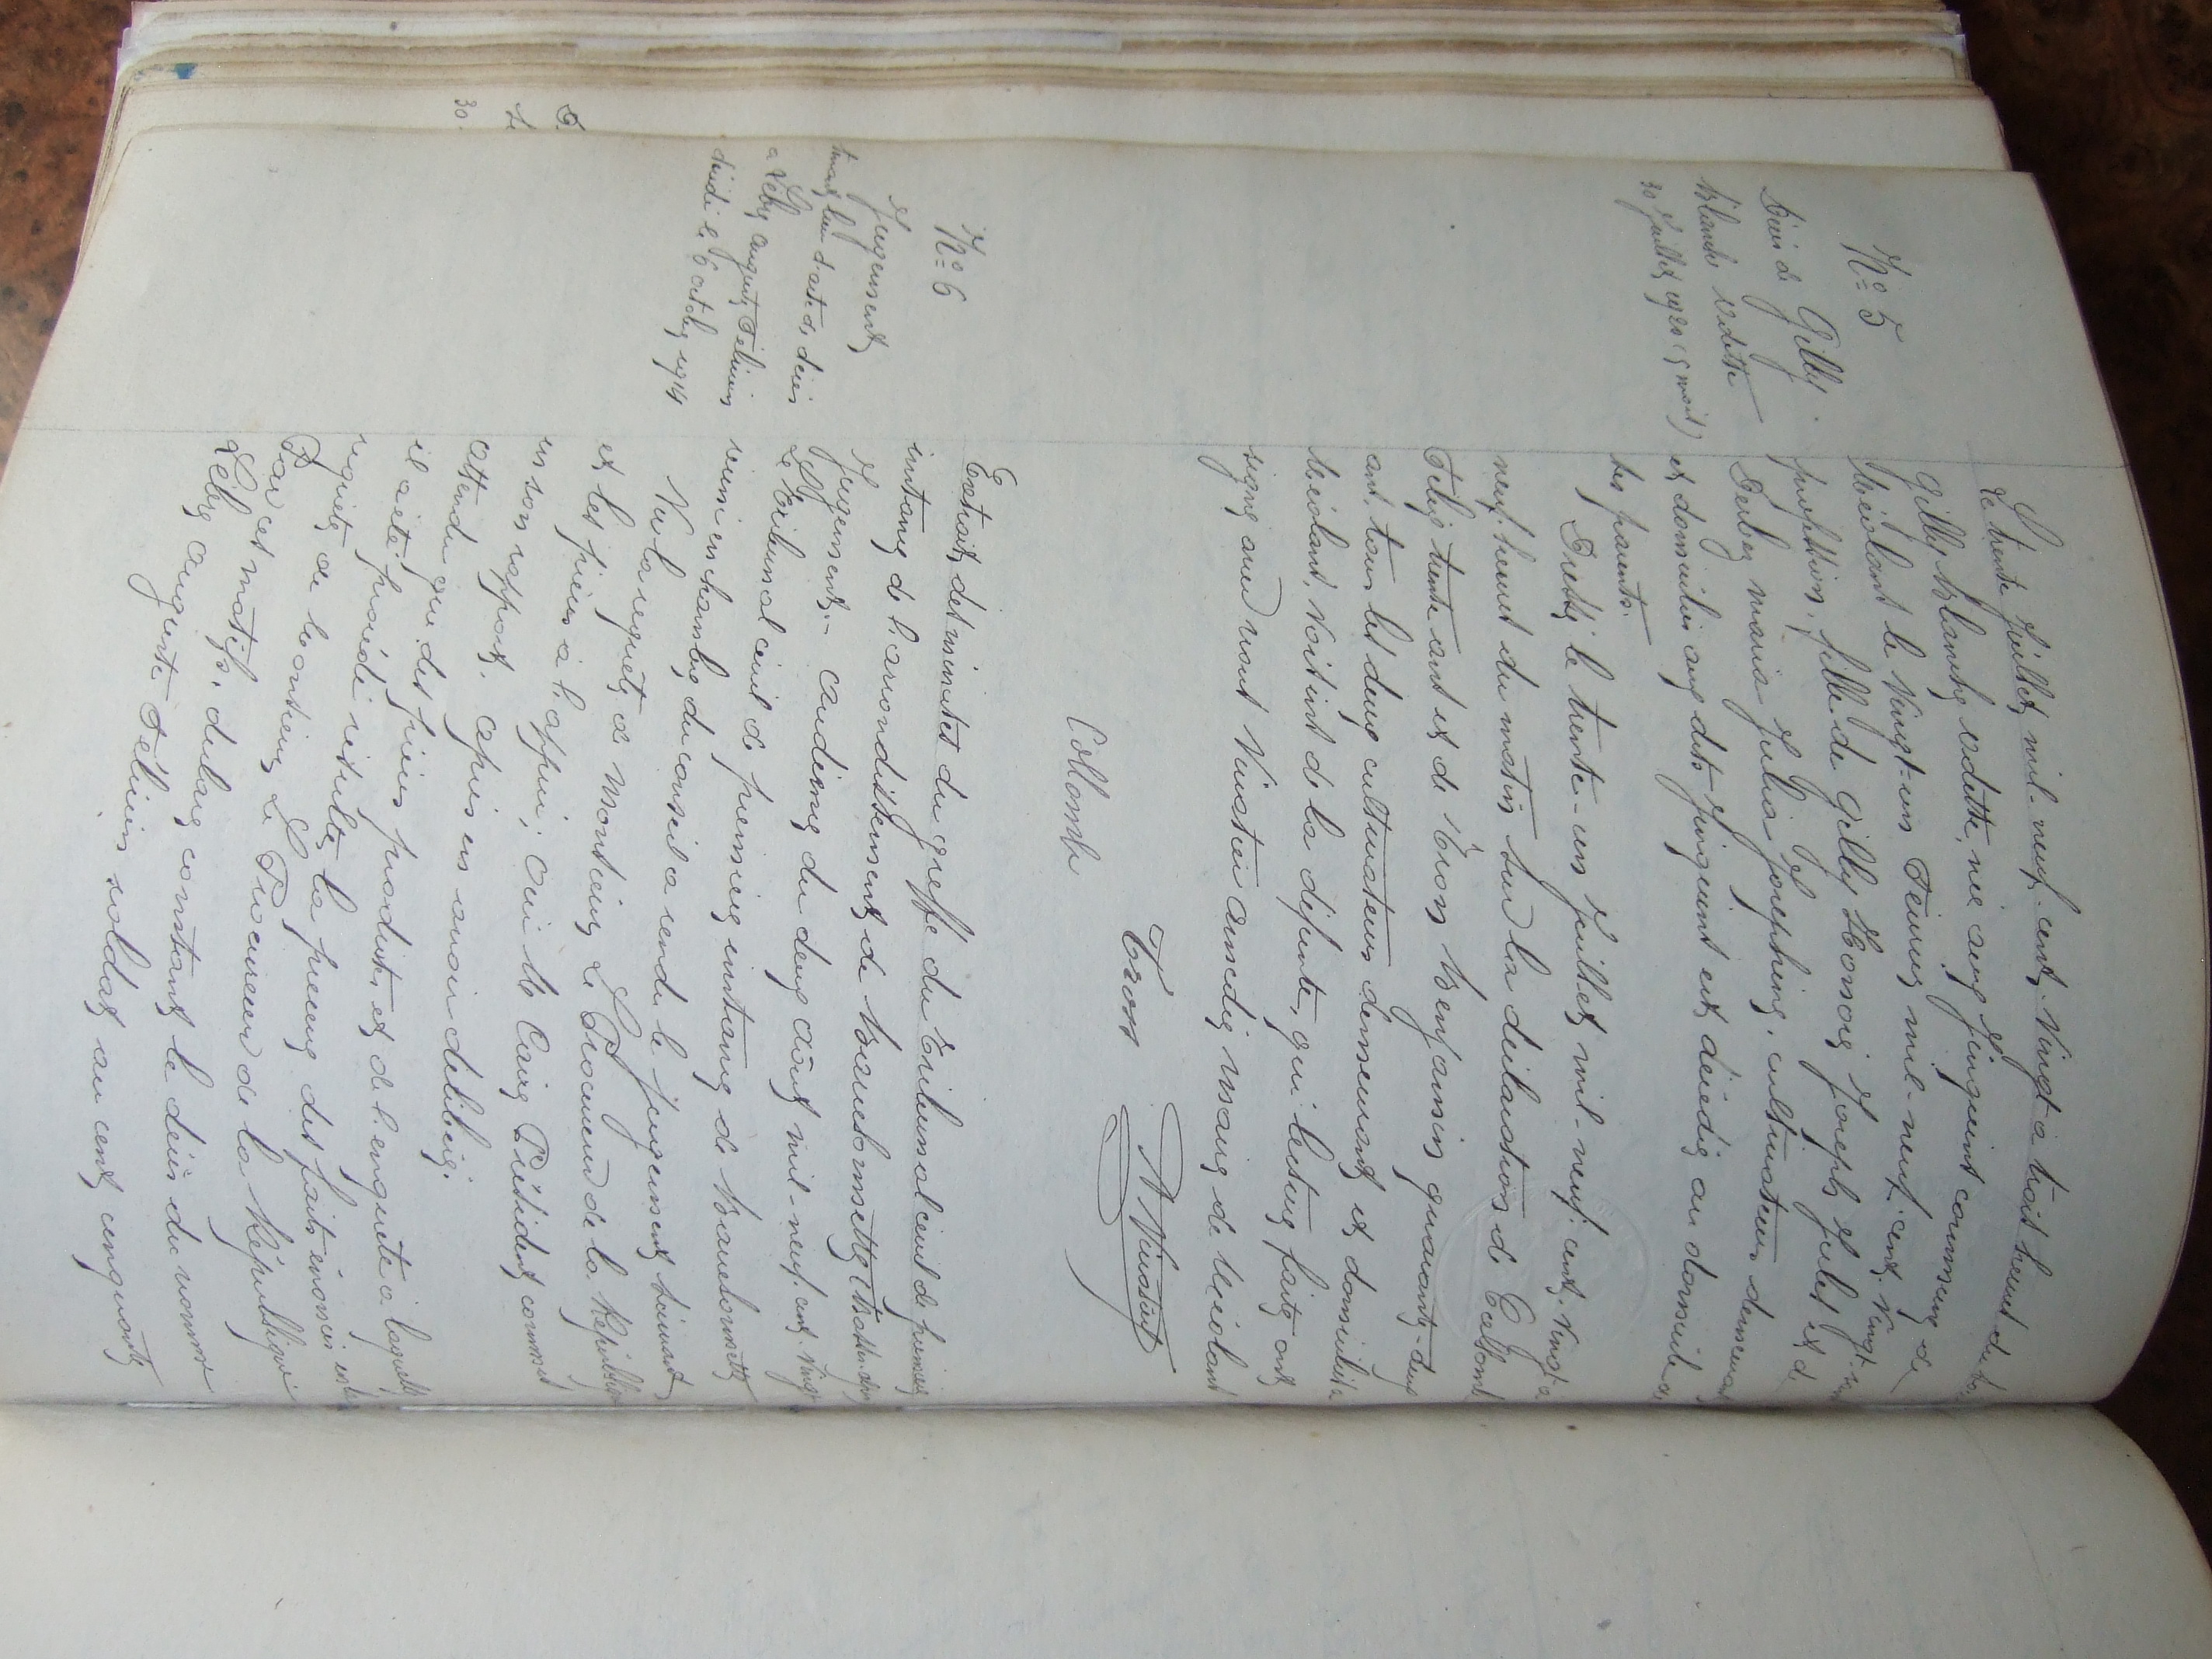 N° 5
Décès de Gilly
Blanche Odette
30 Juillet 1920 (5 mois)
Le trente Juillet mil-neuf-cent-vingt à trois heures du
Gilly Blanche Odette, née aux commune de
Méolans le vingt-un Février mil-neuf-cent-vingt
profession, fille de Gilly Joseph Jules et de
Maria Julia Joséphine, cultivateurs demeurant
et domiciliés aux dits est décédée au domicile de
ses parents.
Dressé le trente-un Juillet mil-neuf-cent-vingt à
neuf heures du matin sur la déclaration de Collomb
Félix trente ans et de Tron Benjamin quarante-deux
ans, tous les deux cultivateurs demeurant et domiciliés à
Méolans, voisins de la défunte, qui lecture faite ont
signé avec nous Amédée maire de Méolans
Tron
Collomb
N° 6
Jugement
tenant lieu d'acte de décès
à Auguste Félicien
décédé le 6 octobre 1914
Extrait des minutes du greffe du Tribunal civil de première
instance de l'arrondissement de Barcelonnette
Jugement. - Audience du deux août mil-neuf-cent-vingt
Le Tribunal civil de première instance de Barcelonnette
réuni en chambre du conseil a rendu le jugement suivant
Vu la requête de Monsieur Le Procureur de la République
et les pièces à l'appui; Ouï M. Caire Président commis
en son rapport. après en avoir délibéré.
Attendu que des pièces produites et de l'enquête à laquelle
il a été procédé résulte la preuve des faits énoncés en la
requête de Monsieur Le Procureur de la République
Par ces motifs, déclare constant le décès du nommé
Auguste Félicien soldat au cent cinquante